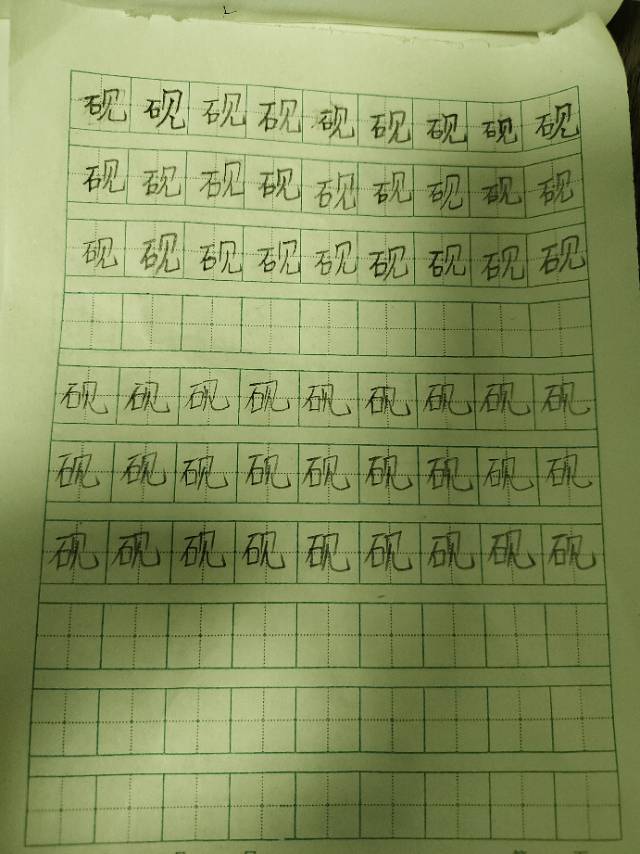 砚砚砚砚砚砚砚砚砚
砚砚砚砚砚砚砚砚砚
砚砚砚砚砚砚砚砚砚
砚砚砚砚砚砚砚砚砚
砚砚砚砚砚砚砚砚砚
砚砚砚砚砚砚砚砚砚